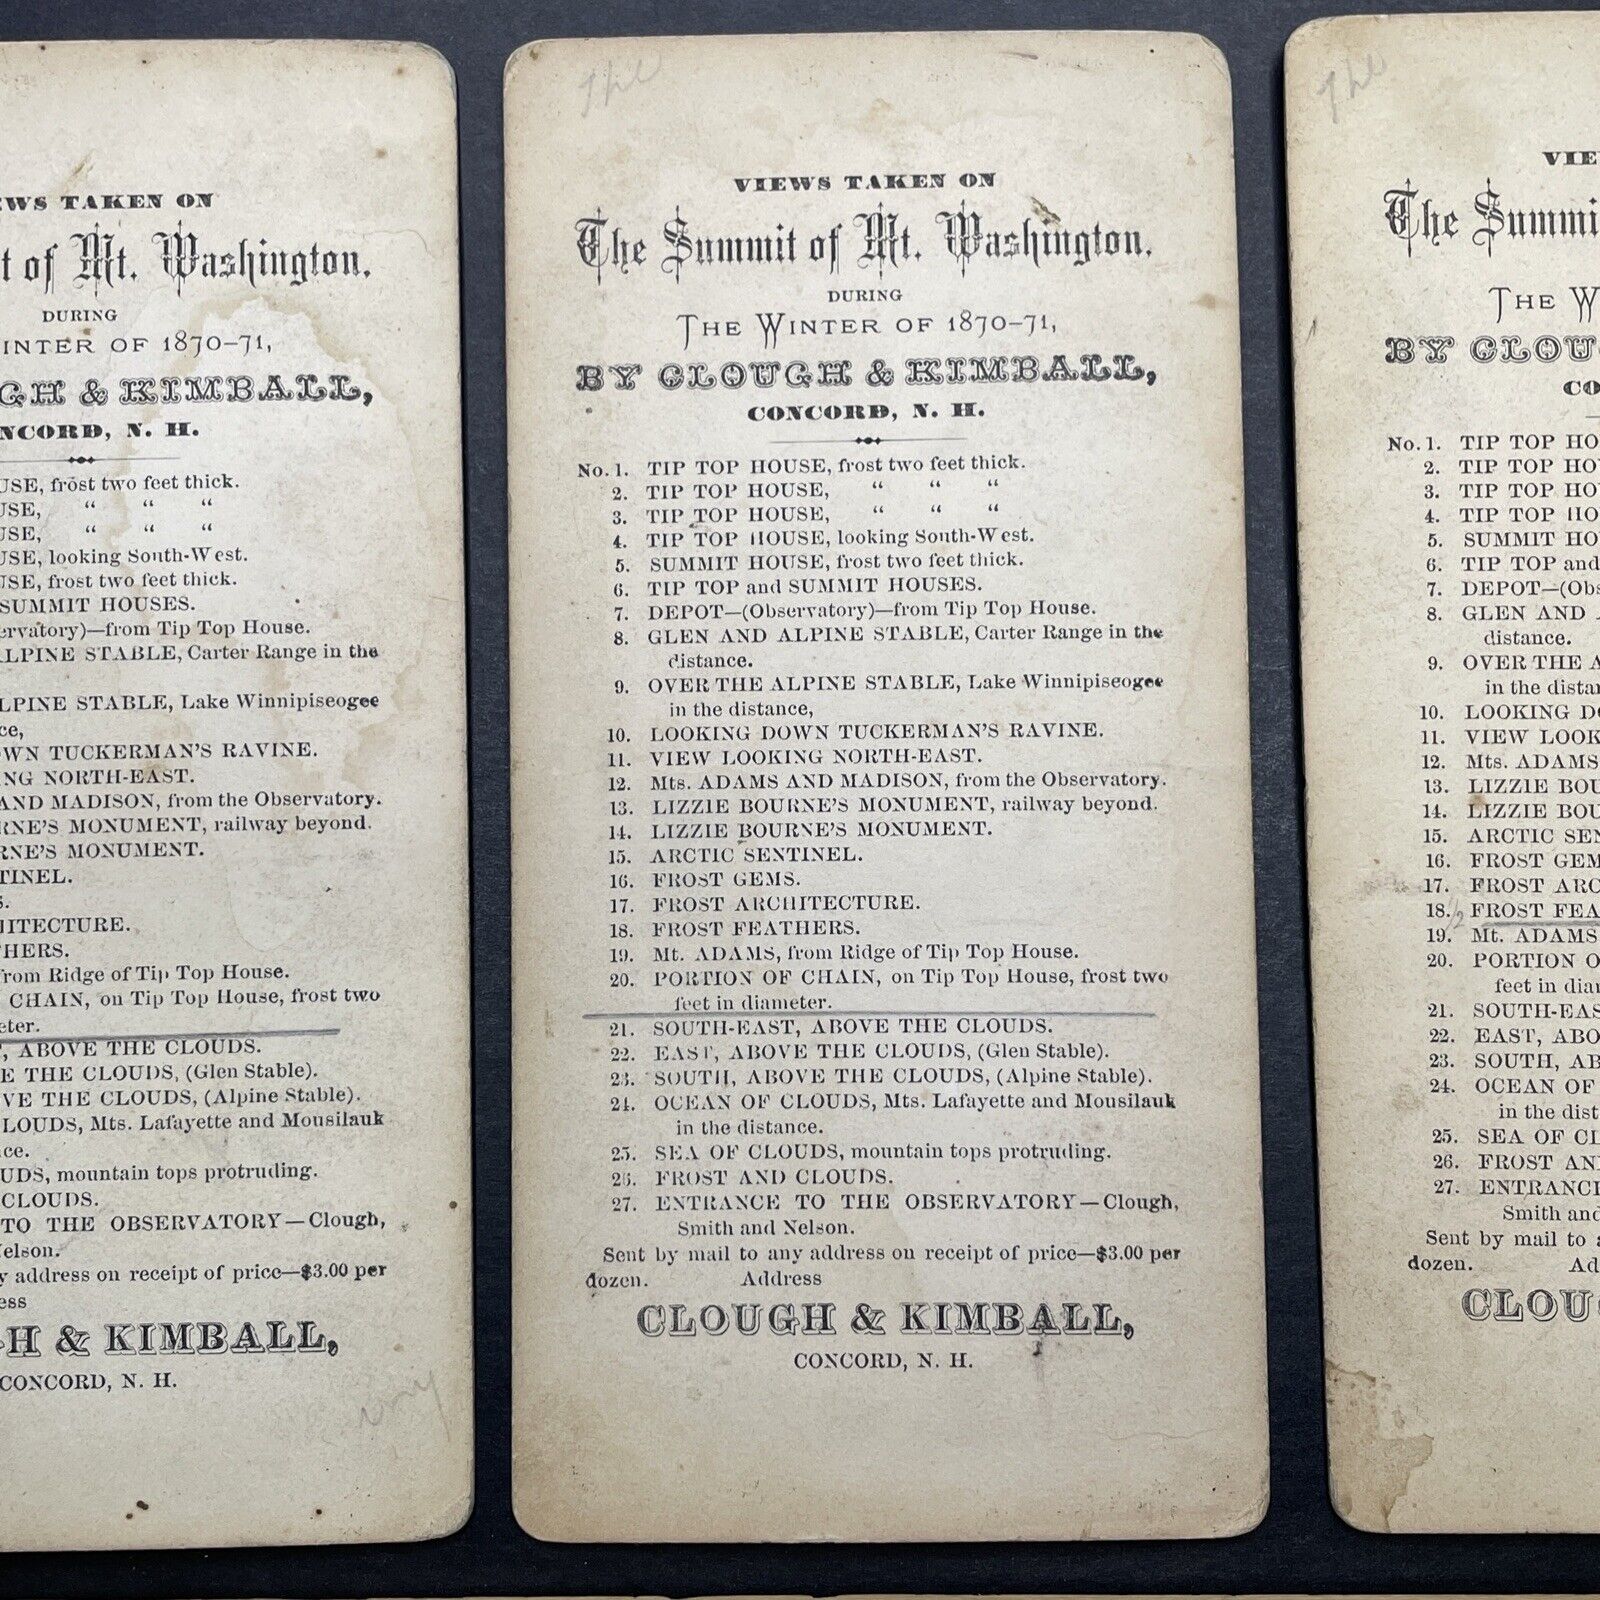 EWS TAKEN ON
t of Mt. Washington.
DURING
INTER OF 1870-71,
GH & KIMBALL,
NCORD, N. H.
USE, frost two feet thick.
USE, “ “ “
USE, “ “ “
USE, looking South-West.
USE, frost two feet thick.
SUMMIT HOUSES.
ervatory)—from Tip Top House.
ALPINE STABLE, Carter Range in the
LPINE STABLE, Lake Winnipiseogee
ce,
OWN TUCKERMAN'S RAVINE.
NG NORTH-EAST.
AND MADISON, from the Observatory.
RNE'S MONUMENT, railway beyond.
RNE'S MONUMENT.
TINEL.
S.
HITECTURE.
THERS.
from Ridge of Tip Top House.
CHAIN, on Tip Top House, frost two
eter.
T, ABOVE THE CLOUDS.
E THE CLOUDS, (Glen Stable).
VE THE CLOUDS, (Alpine Stable).
LOUDS, Mts. Lafayette and Mousilauk
ce.
UDS, mountain tops protruding.
CLOUDS.
TO THE OBSERVATORY—Clough,
Nelson.
y address on receipt of price—$3.00 per
ess
GH & KIMBALL,
CONCORD, N. H.
The
VIEWS TAKEN ON
The Summit of Mt. Washington.
DURING
THE WINTER OF 1870-71,
BY CLOUGH & KIMBALL,
CONCORD, N. H.
No. 1. TIP TOP HOUSE, frost two feet thick.
2. TIP TOP HOUSE, “ “ “
3. TIP TOP HOUSE, “ “ “
4. TIP TOP HOUSE, looking South-West.
5. SUMMIT HOUSE, frost two feet thick.
6. TIP TOP and SUMMIT HOUSES.
7. DEPOT—(Observatory)—from Tip Top House.
8. GLEN AND ALPINE STABLE, Carter Range in the
distance.
9. OVER THE ALPINE STABLE, Lake Winnipiseogee
in the distance,
10. LOOKING DOWN TUCKERMAN'S RAVINE.
11. VIEW LOOKING NORTH-EAST.
12. Mts. ADAMS AND MADISON, from the Observatory.
13. LIZZIE BOURNE'S MONUMENT, railway beyond.
14. LIZZIE BOURNE'S MONUMENT.
15. ARCTIC SENTINEL.
16. FROST GEMS.
17. FROST ARCHITECTURE.
18. FROST FEATHERS.
19. Mt. ADAMS, from Ridge of Tip Top House.
20. PORTION OF CHAIN, on Tip Top House, frost two
feet in diameter.
21. SOUTH-EAST, ABOVE THE CLOUDS.
22. EAST, ABOVE THE CLOUDS, (Glen Stable).
23. SOUTH, ABOVE THE CLOUDS, (Alpine Stable).
24. OCEAN OF CLOUDS, Mts. Lafayette and Mousilauk
in the distance.
25. SEA OF CLOUDS, mountain tops protruding.
26. FROST AND CLOUDS.
27. ENTRANCE TO THE OBSERVATORY—Clough,
Smith and Nelson.
Sent by mail to any address on receipt of price—$3.00 per
dozen. Address
CLOUGH & KIMBALL,
CONCORD, N. H.
The
VIE
The Summi
THE W
BY CLOU
CO
No. 1. TIP TOP HO
2. TIP TOP HO
3. TIP TOP HO
4. TIP TOP HO
5. SUMMIT HO
6. TIP TOP and
7. DEPOT—(Obs
8. GLEN AND A
distance.
9. OVER THE A
in the distan
10. LOOKING DO
11. VIEW LOOK
12. Mts. ADAMS
13. LIZZIE BOU
14. LIZZIE BOU
15. ARCTIC SEN
16. FROST GEM
17. FROST ARC
18. FROST FEA
19. Mt. ADAMS
20. PORTION O
feet in dia
21. SOUTH-EAS
22. EAST, ABO
23. SOUTH, AB
24. OCEAN OF
in the dist
25. SEA OF CL
26. FROST AN
27. ENTRANCE
Smith and
Sent by mail to a
dozen. Ad
CLOU
CO